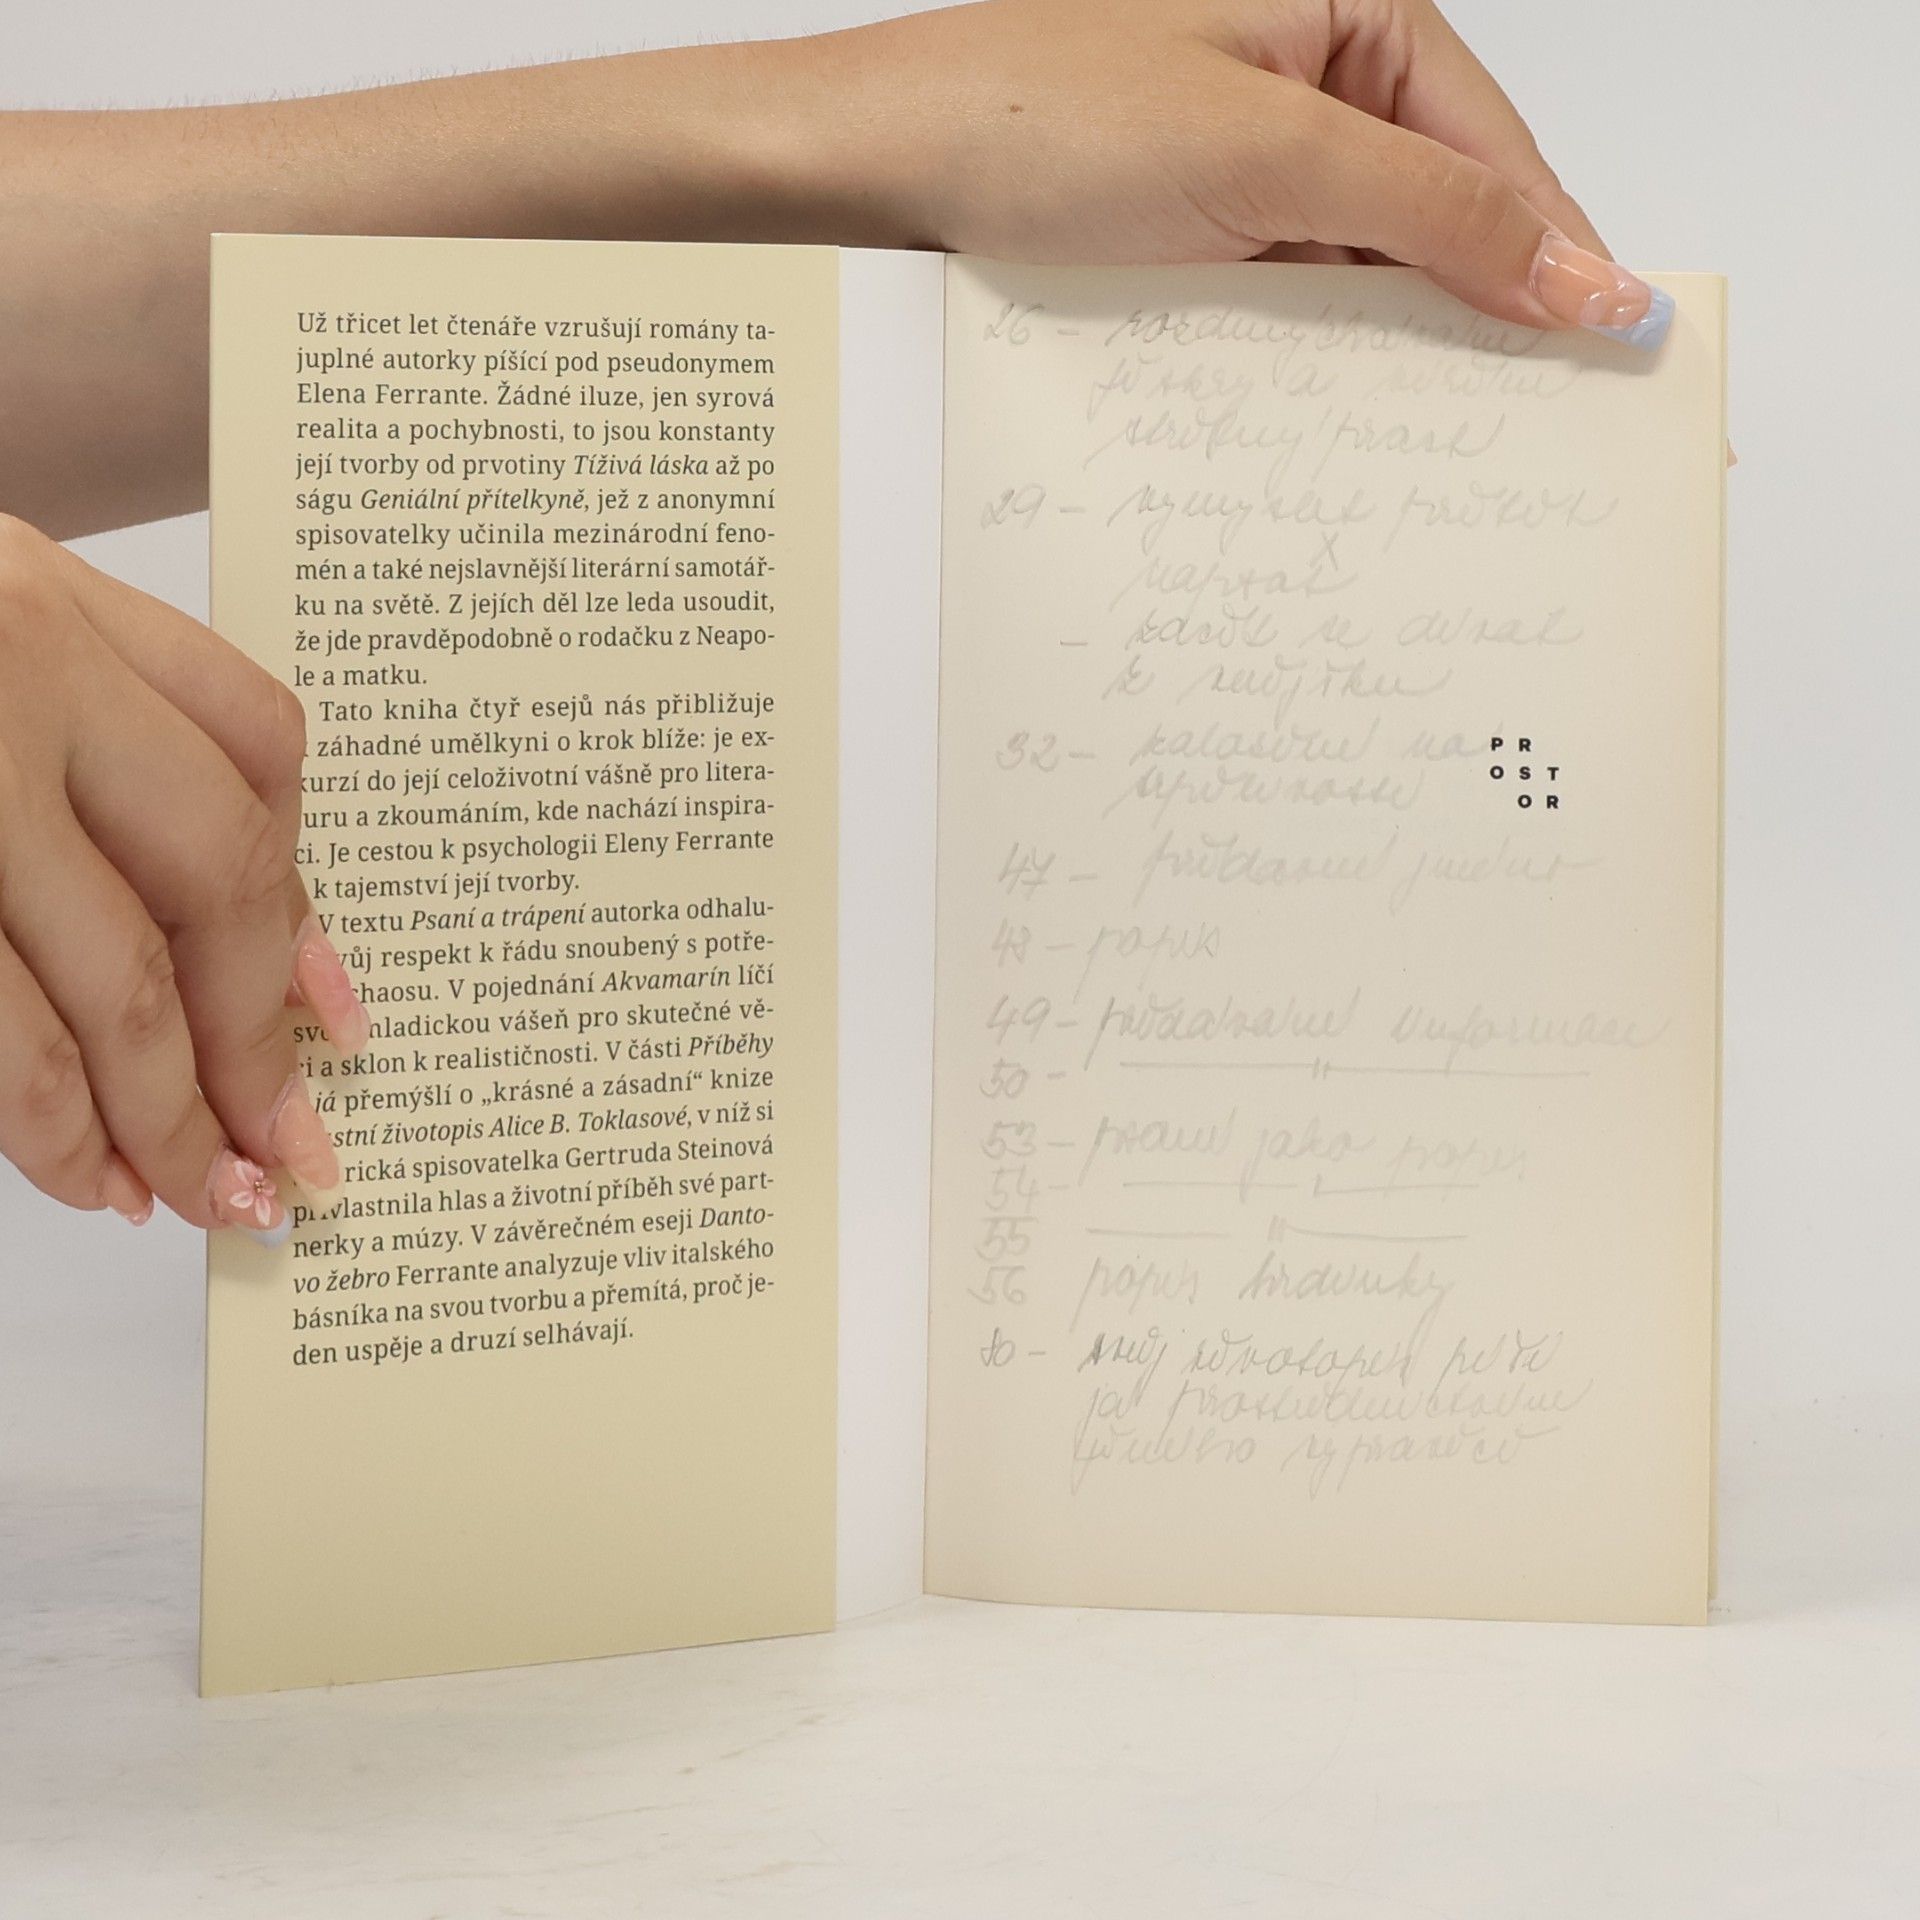 Už třicet let čtenáře vzrušují romány ta-
juplné autorky píšící pod pseudonymem
Elena Ferrante. Žádné iluze, jen syrová
realita a pochybnosti, to jsou konstanty
její tvorby od prvotiny Tíživá láska až po
ságu Geniální přítelkyně, jež z anonymní
spisovatelky učinila mezinárodní feno-
mén a také nejslavnější literární samotář-
ku na světě. Z jejích děl lze leda usoudit,
že jde pravděpodobně o rodačku z Neapo-
le a matku.
Tato kniha čtyř esejů nás přibližuje
záhadné umělkyni o krok blíže: je ex-
kurzí do její celoživotní vášně pro litera-
uru a zkoumáním, kde nachází inspira-
ci. Je cestou k psychologii Eleny Ferrante
k tajemství její tvorby.
V textu Psaní a trápení autorka odhalu-
vůj respekt k řádu snoubený s potře-
chaosu. V pojednání Akvamarín líčí
mladickou vášeň pro skutečné vě-
i a sklon k realističnosti. V části Příběhy
já přemýšlí o „krásné a zásadní“ knize
stní životopis Alice B. Toklasové, v níž si
rická spisovatelka Gertruda Steinová
vlastnila hlas a životní příběh své part-
nerky a múzy. V závěrečném eseji Danto-
vo žebro Ferrante analyzuje vliv italského
básníka na svou tvorbu a přemítá, proč je-
den uspěje a druzí selhávají.
26 –
29 – vymyslet
X
napsat
– začít se dívat
32 – na
P R
O S T
O R
47 –
48 – popis
49 – předávání informací
50 – "
53 – psaní jako popis
54 – "
55 "
56 popis hrdinky
80 – svůj životopis píší
já prostřednictvím
jiného vypravěče